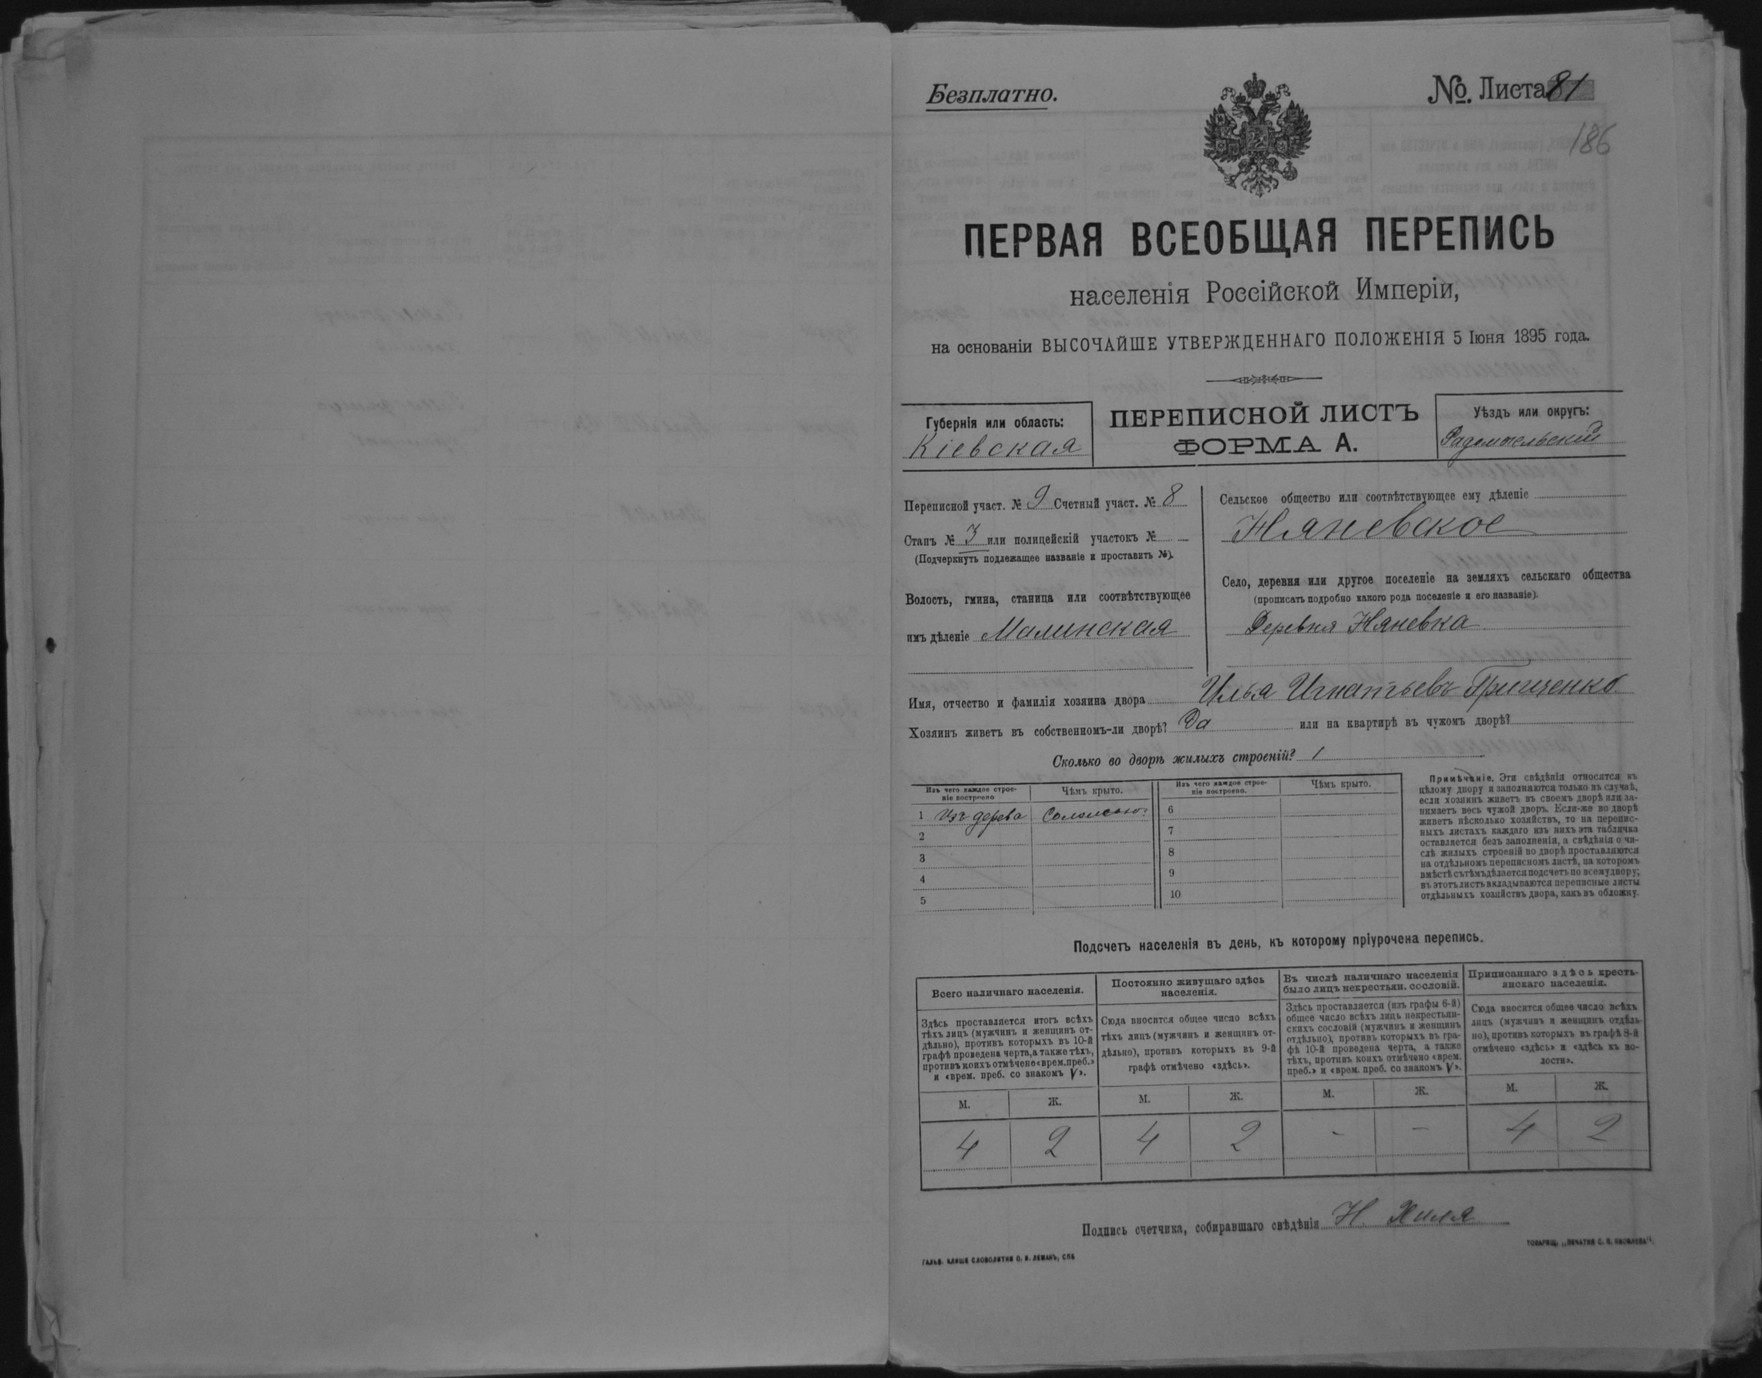 Безплатно.
№. Листа 81
186
ПЕРВАЯ ВСЕОБЩАЯ ПЕРЕПИСЬ
населенія Россійской Имперіи,
на основаніи ВЫСОЧАЙШЕ УТВЕРЖДЕННАГО ПОЛОЖЕНІЯ 5 Іюня 1895 года.
Губернія или область:
Кіевская
ПЕРЕПИСНОЙ ЛИСТЪ
ФОРМА А.
Уѣздъ или округъ:
Радомысльскій
Переписной участ. № 9 Счетный участ. № 8
Станъ № 3 или полицейскій участокъ №
(Подчеркнуть подлежащее названіе и проставить №).
Волость, гмина, станица или соотвѣтствующее
имъ дѣленіе Малинская
Сельское общество или соотвѣтствующее ему дѣленіе
Няневское
Село, деревня или другое поселеніе на земляхъ сельскаго общества
(прописать подробно какого рода поселеніе и его названіе).
Деревня Няневка
Имя, отчество и фамилія хозяина двора Илья Игнатьевъ Грищенко
Хозяинъ живетъ въ собственномъ-ли дворѣ? Да или на квартирѣ въ чужомъ дворѣ?
Сколько во дворѣ жилыхъ строеній? 1
Изъ чего каждое строе-
ніе построено
Чѣмъ крыто.
1 Изъ дерева Соломою
2
3
4
5
Изъ чего каждое строе-
ніе построено.
Чѣмъ крыто.
6
7
8
9
10
Примѣчаніе. Эти свѣдѣнія относятся къ
цѣлому двору и заполняются только въ случаѣ,
если хозяинъ живетъ въ своемъ дворѣ или за-
нимаетъ весь чужой дворъ. Если-же во дворѣ
живетъ нѣсколько хозяйствъ, то на перепис-
ныхъ листахъ каждаго изъ нихъ эта табличка
оставляется безъ заполненія, а свѣдѣнія о чи-
слѣ жилыхъ строеній во дворѣ проставляются
на отдѣльномъ переписномъ листѣ, на которомъ
вмѣстѣ съ тѣмъ дѣлается подсчетъ по всему двору;
въ этотъ листъ вкладываются переписные листы
отдѣльныхъ хозяйствъ двора, какъ въ обложку.
Подсчетъ населенія въ день, къ которому пріурочена перепись.
Всего наличнаго населенія.
Здѣсь проставляется итогъ всѣхъ
тѣхъ лицъ (мужчинъ и женщинъ от-
дѣльно), противъ которыхъ въ 10-й
графѣ проведена черта, а также тѣхъ,
противъ коихъ отмѣчено «врем. преб.»
и «врем. преб. со знакомъ V».
М. Ж.
4 2
Постоянно живущаго здѣсь
населенія.
Сюда вносится общее число всѣхъ
тѣхъ лицъ (мужчинъ и женщинъ от-
дѣльно), противъ которыхъ въ 9-й
графѣ отмѣчено «здѣсь».
М. Ж.
4 2
Въ числѣ наличнаго населенія
было лицъ некрестьян. сословій.
Здѣсь проставляется (изъ графы 6-й)
общее число всѣхъ лицъ некрестьян-
скихъ сословій (мужчинъ и женщинъ
отдѣльно), противъ которыхъ въ гра-
фѣ 10-й проведена черта, а также
тѣхъ, противъ коихъ отмѣчено «врем.
преб.» и «врем. преб. со знакомъ V».
М. Ж.
- -
Приписаннаго здѣсь кресть-
янскаго населенія.
Сюда вносится общее число всѣхъ
лицъ (мужчинъ и женщинъ отдѣль-
но), противъ которыхъ въ графѣ 8-й
отмѣчено «здѣсь» и «здѣсь къ во-
лости».
М. Ж.
4 2
Подпись счетчика, собиравшаго свѣдѣнія Н. Хиля
ГАЛЬВ. КЛИШЕ СЛОВОЛИТНИ О. И. ЛЕМАНЪ, СПБ